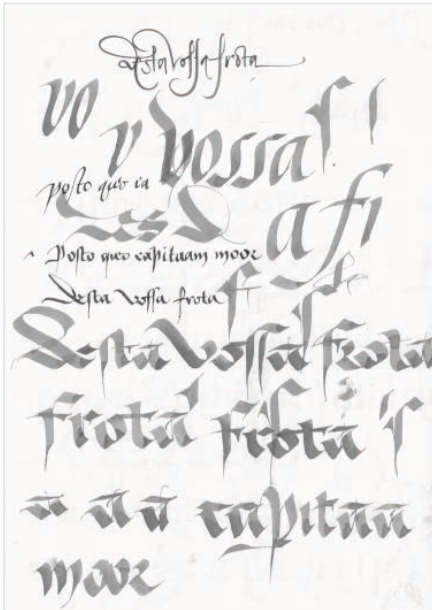 desta vossa frota
vo v vossa
posto que ia
des d a fi
posto queo capitaam moor
desta vossa frota
desta vossa frota
frota frota
a a a capitaa
moor